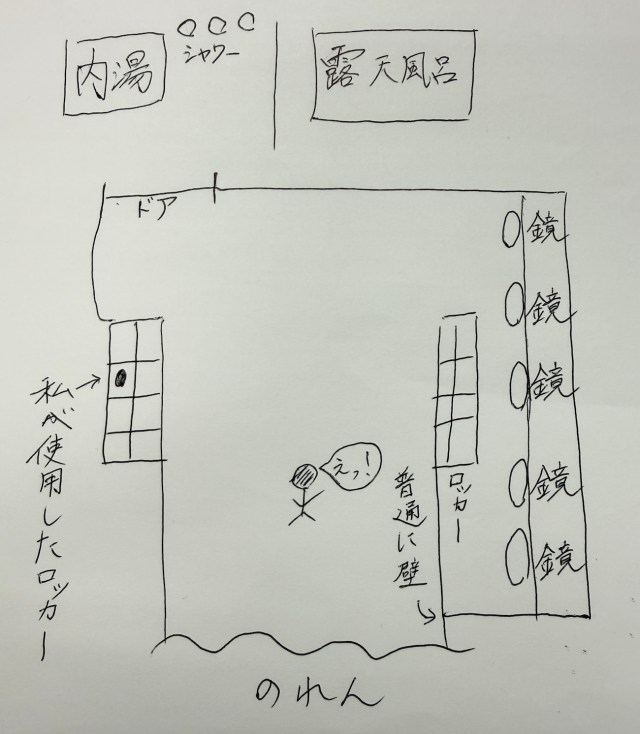 内湯
シャワー
露天風呂
ドア
鏡
鏡
鏡
鏡
鏡
私が使用したロッカー
えっ!
普通に壁
ロッカー
のれん